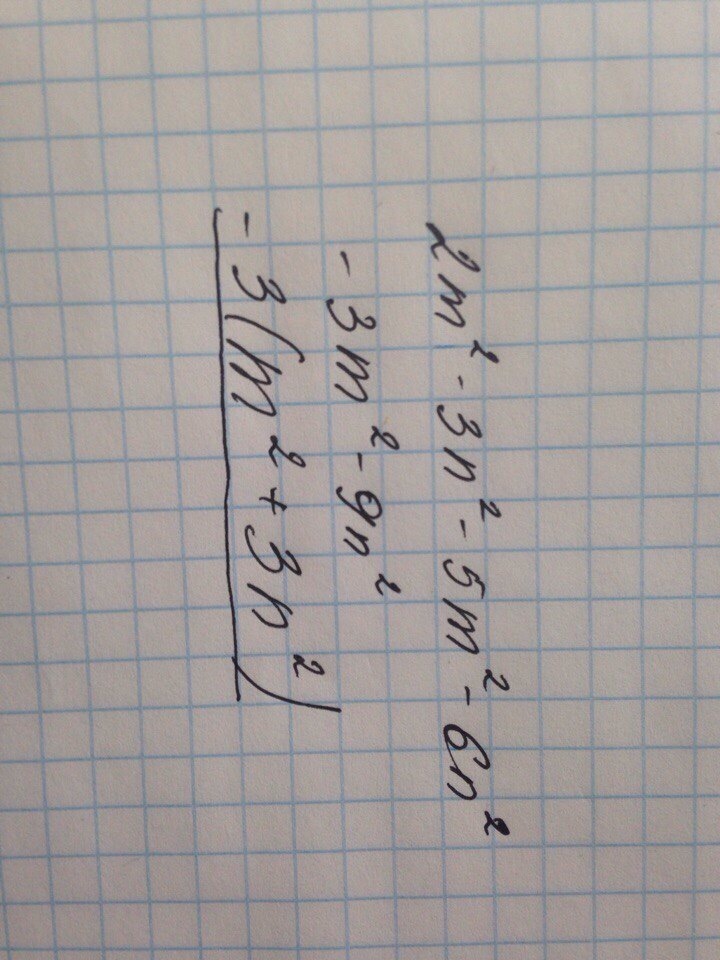 2m² - 3n² - 5m² - 6n²
- 3m² - 9n²
- 3(m² + 3n²)